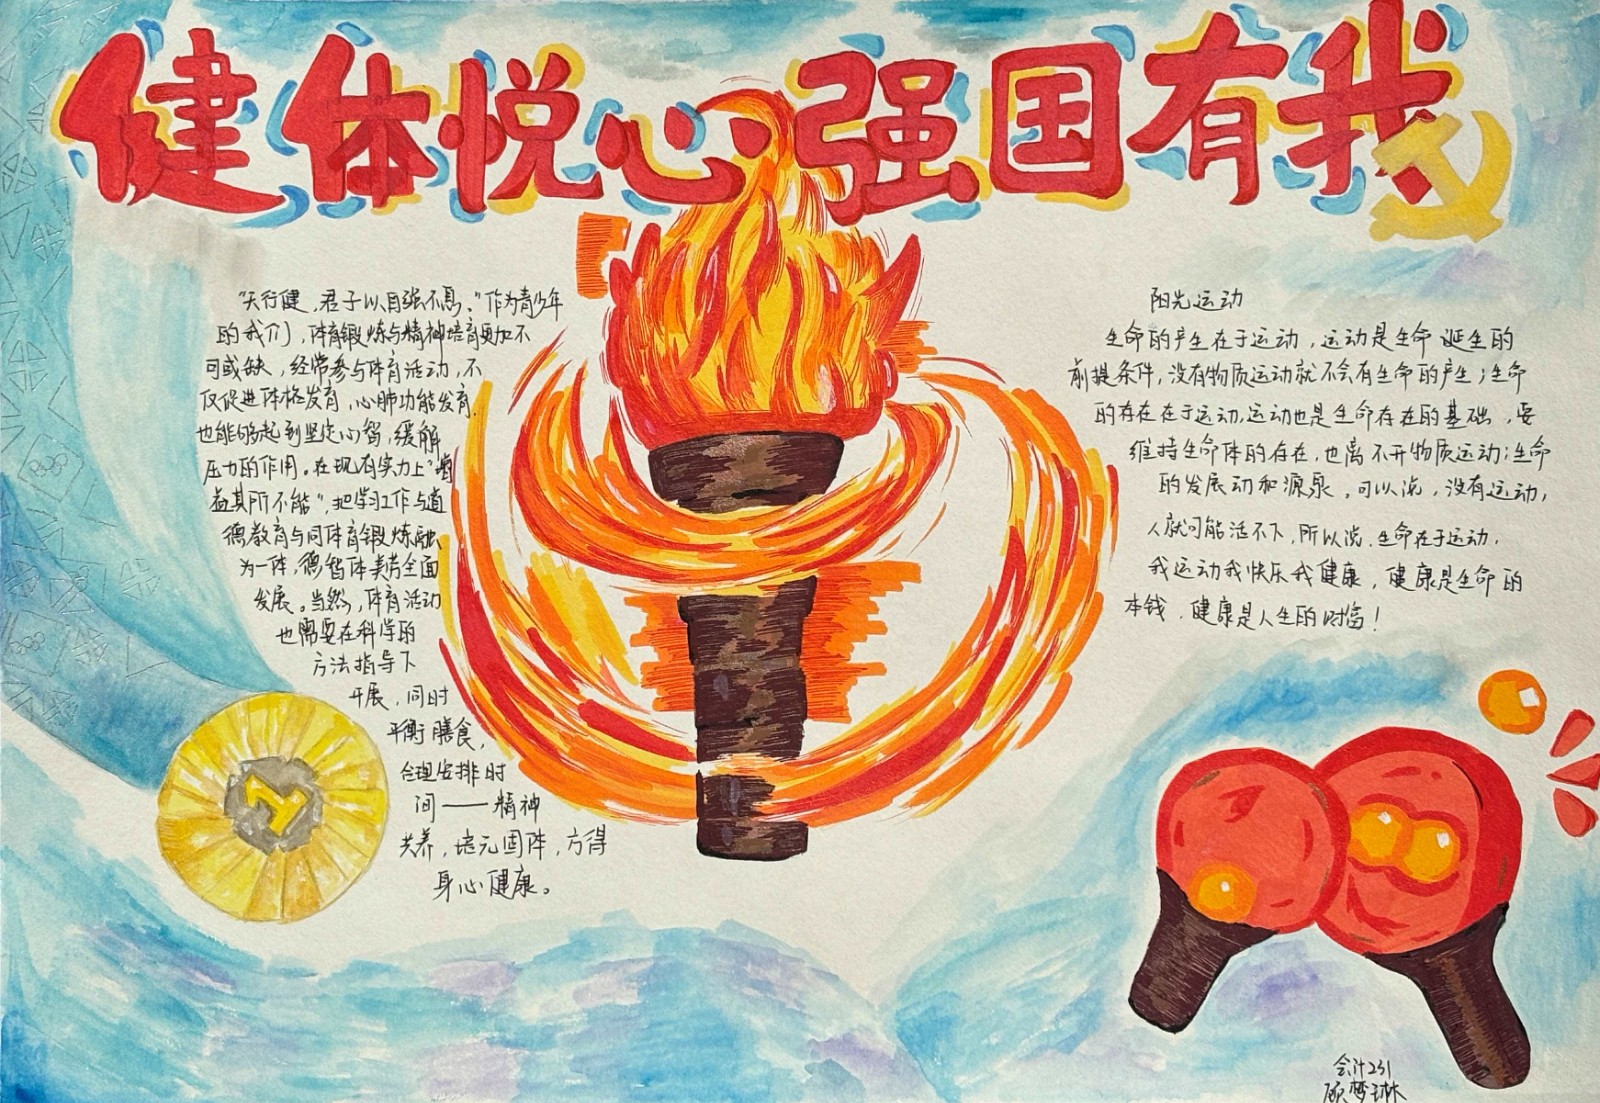 健体悦心强国有我
"天行健，君子以自强不息。"作为青少年
的我们，体育锻炼与精神培育更加不
可或缺，经常参与体育活动，不
仅促进体格发育，心肺功能发育，
也能够起到坚定心智，缓解
压力的作用。在现有实力上"曾
益其所不能"，把学习工作与道
德教育与同体育锻炼融
为一体，德智体美劳全面
发展。当然，体育活动
也需要在科学的
方法指导下
开展，同时
平衡膳食，
合理安排时
间——精神
共养，培元固体，方得
身心健康。
阳光运动
生命的产生在于运动，运动是生命诞生的
前提条件，没有物质运动就不会有生命的产生；生命
的存在在于运动，运动也是生命存在的基础，要
维持生命体的存在，也离不开物质运动；生命
的发展动和源泉。可以说，没有运动，
人就可能活不下，所以说，生命在于运动，
我运动我快乐我健康，健康是生命的
本钱，健康是人生的财富！
会计231
顾梦琳